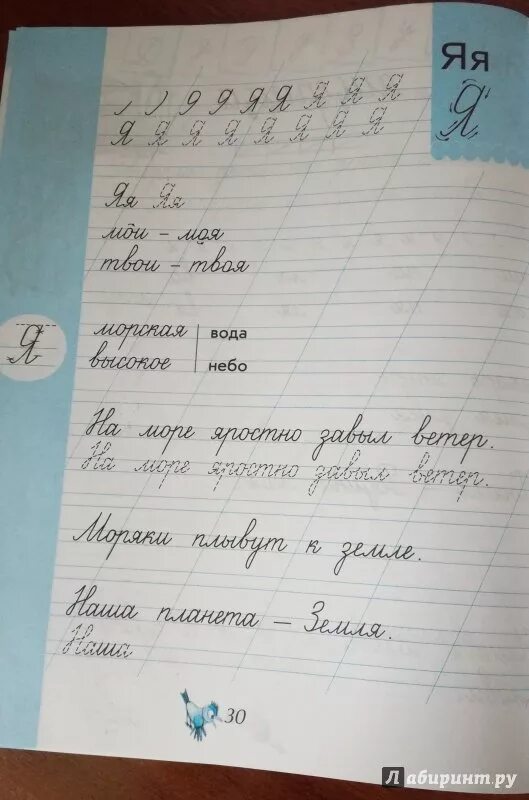 Яя
Я
Я Я Я Я Я Я
Я Я Я Я Я Я Я Я
Яя Яя
мои – моя
твои – твоя
Я
морская | вода
высокое | небо
На море яростно завыл ветер.
На море яростно завыл ветер.
Моряки плывут к земле.
Наша планета – Земля.
Наша
30
Лабиринт.ру